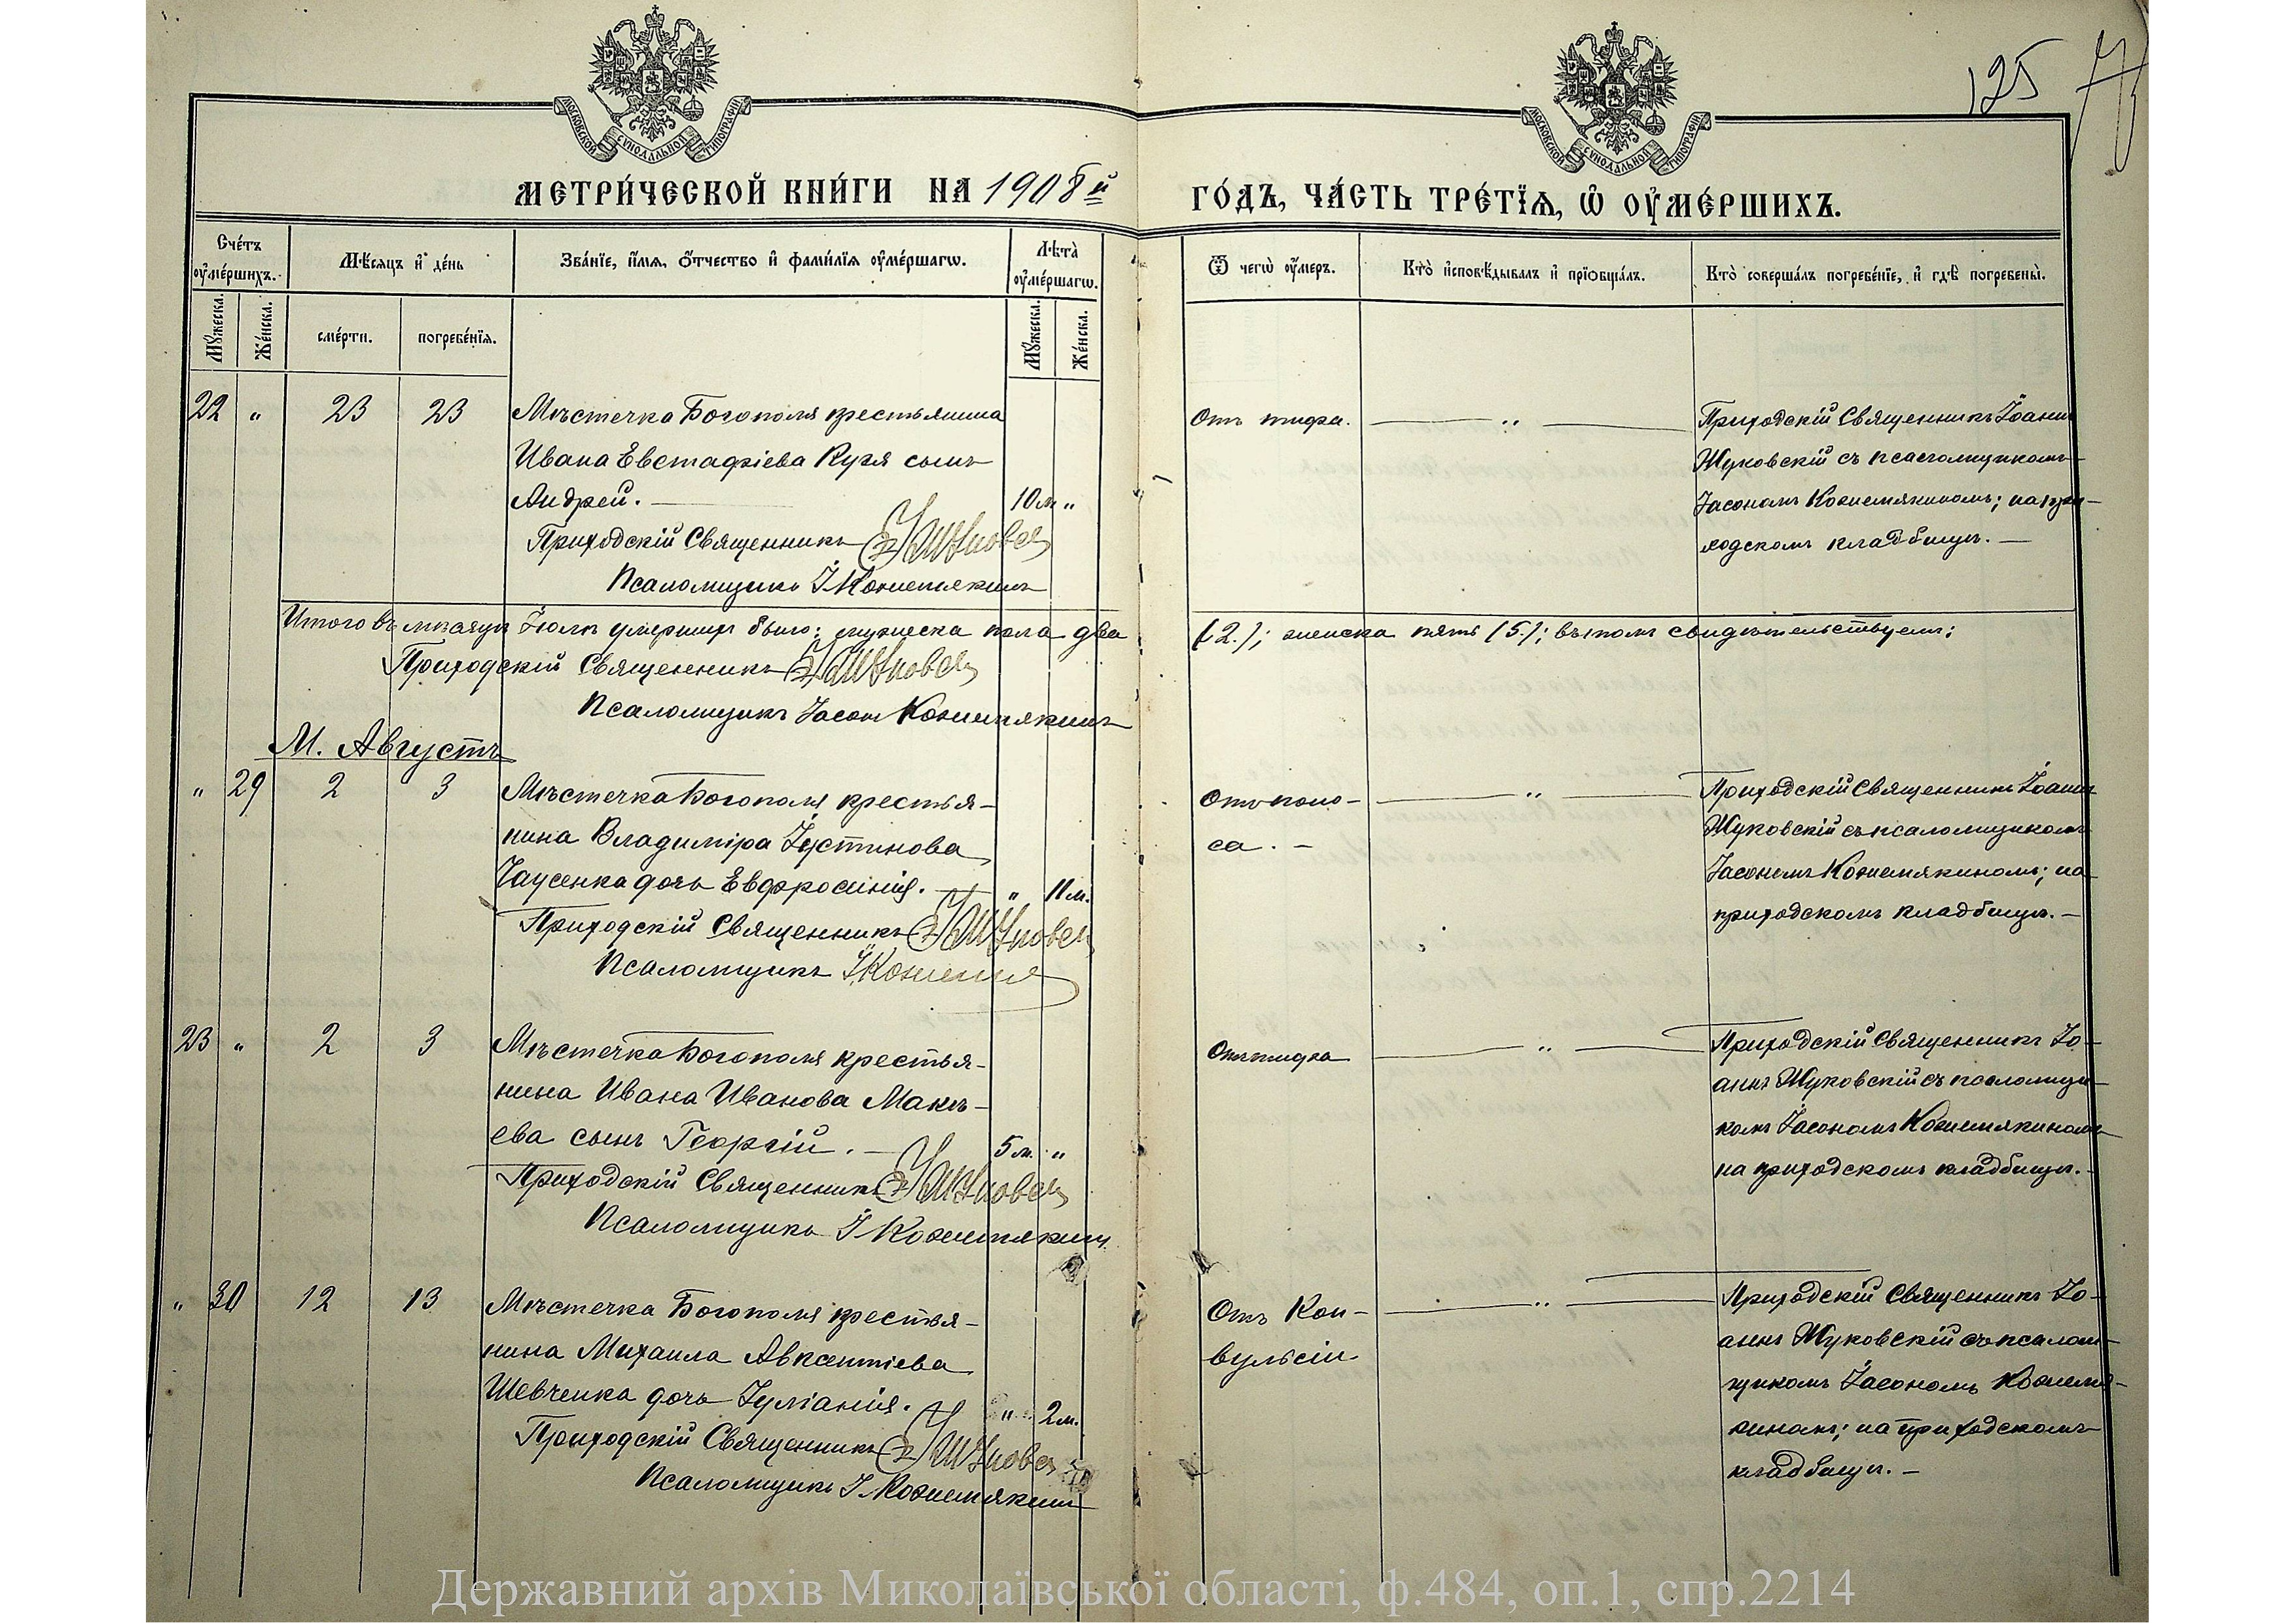 125
МОСКОВСКОЙ СѴНОДАЛЬНОЙ ТИПОГРАФІИ
МОСКОВСКОЙ СѴНОДАЛЬНОЙ ТИПОГРАФІИ
МЕТРИ́ЧЕСКОЙ КНИ́ГИ НА 1908й ГО́ДЪ, ЧА́СТЬ ТРЕ́ТЇѦ, Ѡ҆ ОУ҆МЕ́РШИХЪ.
Сче́тъ оу҆ме́ршихъ.
Мꙋ́жеска.
Же́нска.
Мѣ́сѧцъ и҆ де́нь
сме́рти.
погребе́нїѧ.
Зва́нїе, и҆́мѧ, ѻ҆́тчество и҆ фами́лїѧ оу҆ме́ршагѡ.
Лѣ́та оу҆ме́ршагѡ.
Мꙋ́жеска.
Же́нска.
Ѿ чегѡ̀ оу҆́меръ.
Кто̀ и҆сповѣ́дывалъ и҆ прїѡбща́лъ.
Кто̀ соверша́лъ погребе́нїе, и҆ гдѣ̀ погребены̀.
22 " 23 23 Мѣстечка Богополя крестьянина
Ивана Евстафіева Куля сынъ
Андрей. 10 м "
Приходскій Священникъ
Псаломщикъ І Кожемякинъ
Отъ тифа. "
Приходскій Священникъ Іоаннъ
Жуковскій съ псаломщикомъ
Іасономъ Кожемякиномъ; на при-
ходскомъ кладбищѣ.
Итого въ мѣсяцѣ Іюлѣ умершихъ было: мужеска пола два (2.); женска пять (5.); въ томъ свидѣтельствуемъ:
Приходскій Священникъ
Псаломщикъ Іасонъ Кожемякинъ
М. Августъ
" 29 2 3 Мѣстечка Богополя крестья-
нина Владиміра Іустинова
Чаусенка дочь Евфросинія. " 11 м.
Приходскій Священникъ
Псаломщикъ І. Кожемя
Отъ поно-
са. "
Приходскій Священникъ Іоаннъ
Жуковскій съ псаломщикомъ
Іасономъ Кожемякиномъ; на
приходскомъ кладбищѣ.
23 " 2 3 Мѣстечка Богополя крестья-
нина Ивана Иванова Макѣ-
ева сынъ Георгій. 5 м. "
Приходскій Священникъ
Псаломщикъ І Кожемякинъ
Отъ тифа "
Приходскій Священникъ Іо-
аннъ Жуковскій съ псаломщи-
комъ Іасономъ Кожемякиномъ
на приходскомъ кладбищѣ.
" 30 12 13 Мѣстечка Богополя крестья-
нина Михаила Авксентіева
Шевченка дочь Іуліанія. " 2 м.
Приходскій Священникъ
Псаломщикъ І. Кожемякинъ
Отъ Кон-
вульсіи "
Приходскій Священникъ Іо-
аннъ Жуковскій съ псалом-
щикомъ Іасономъ Кожемя-
киномъ; на приходскомъ
кладбищѣ.
Державний архів Миколаївської області, ф.484, оп.1, спр.2214